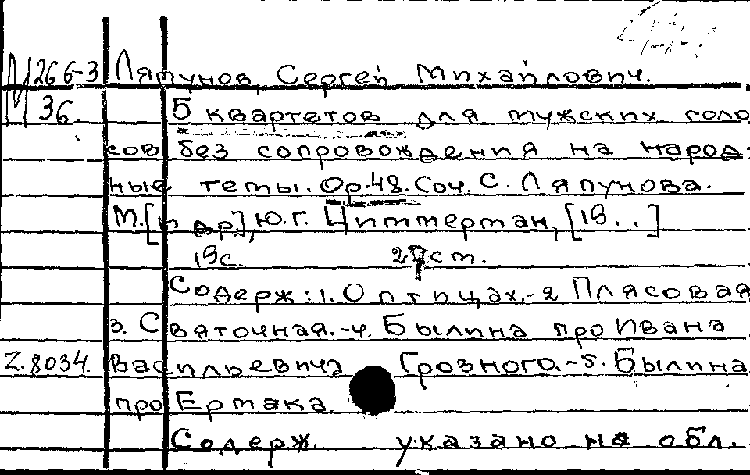 М 266-3 Ляпунов, Сергей Михайлович.
36 5 квартетов для мужских голо
сов без сопровождения на народ-
ные темы. Ор.48. Соч. С. Ляпунова.
М. [и др], Ю.Г. Циммерман, [19..]
19с. 27 ст.
Содерж: 1. О птицах.-2 Плясовая
3. Святочная.-4. Былина про Ивана
Z.8034. Васильевича Грозного.-5. Былина
про Ермака
Содерж. указано на обл.